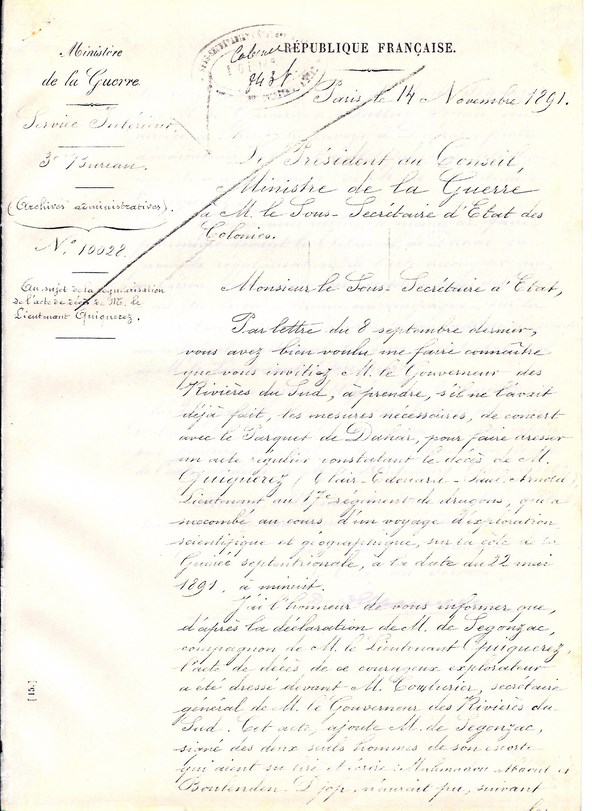 RÉPUBLIQUE FRANÇAISE.
Ministère
de la Guerre
Service Intérieur
3e Bureau.
(Archives administratives).
No 10028.
Au sujet de la
de l'acte de décès de M. le
Lieutenant Quiquerez.
Cabinet
Paris, le 14 Novembre 1891.
Le Président du Conseil,
Ministre de la Guerre
à M. le Sous-Secrétaire d'Etat des
Colonies.
Monsieur le Sous-Secrétaire d'Etat,
Par lettre du 8 septembre dernier,
vous avez bien voulu me faire connaître
que vous invitiez M. le Gouverneur des
Rivières du Sud, à prendre, s'il ne l'avait
déjà fait, les mesures nécessaires, de concert
avec le Parquet de Dakar, pour faire dresser
un acte régulier constatant le décès de M.
Quiquerez (Clair-Edouard-
Lieutenant au 17e régiment de dragons, qui a
succombé au cours d'un voyage d'exploration
scientifique et géographique, sur la côte de la
Guinée septentrionale, à la date du 22 mai
1891, à minuit.
J'ai l'honneur de vous informer que,
d'après la déclaration de M. de Segonzac,
compagnon de M. le Lieutenant Quiquerez,
l'acte de décès de ce courageux explorateur
a été dressé devant M. Cousturier, secrétaire
général de M. le Gouverneur des Rivières du
Sud. Cet acte, ajoute M. de Segonzac,
signé des deux seuls hommes de son escorte
qui aient su lire et écrire:
Diop, n'aurait pu, suivant
[15.]